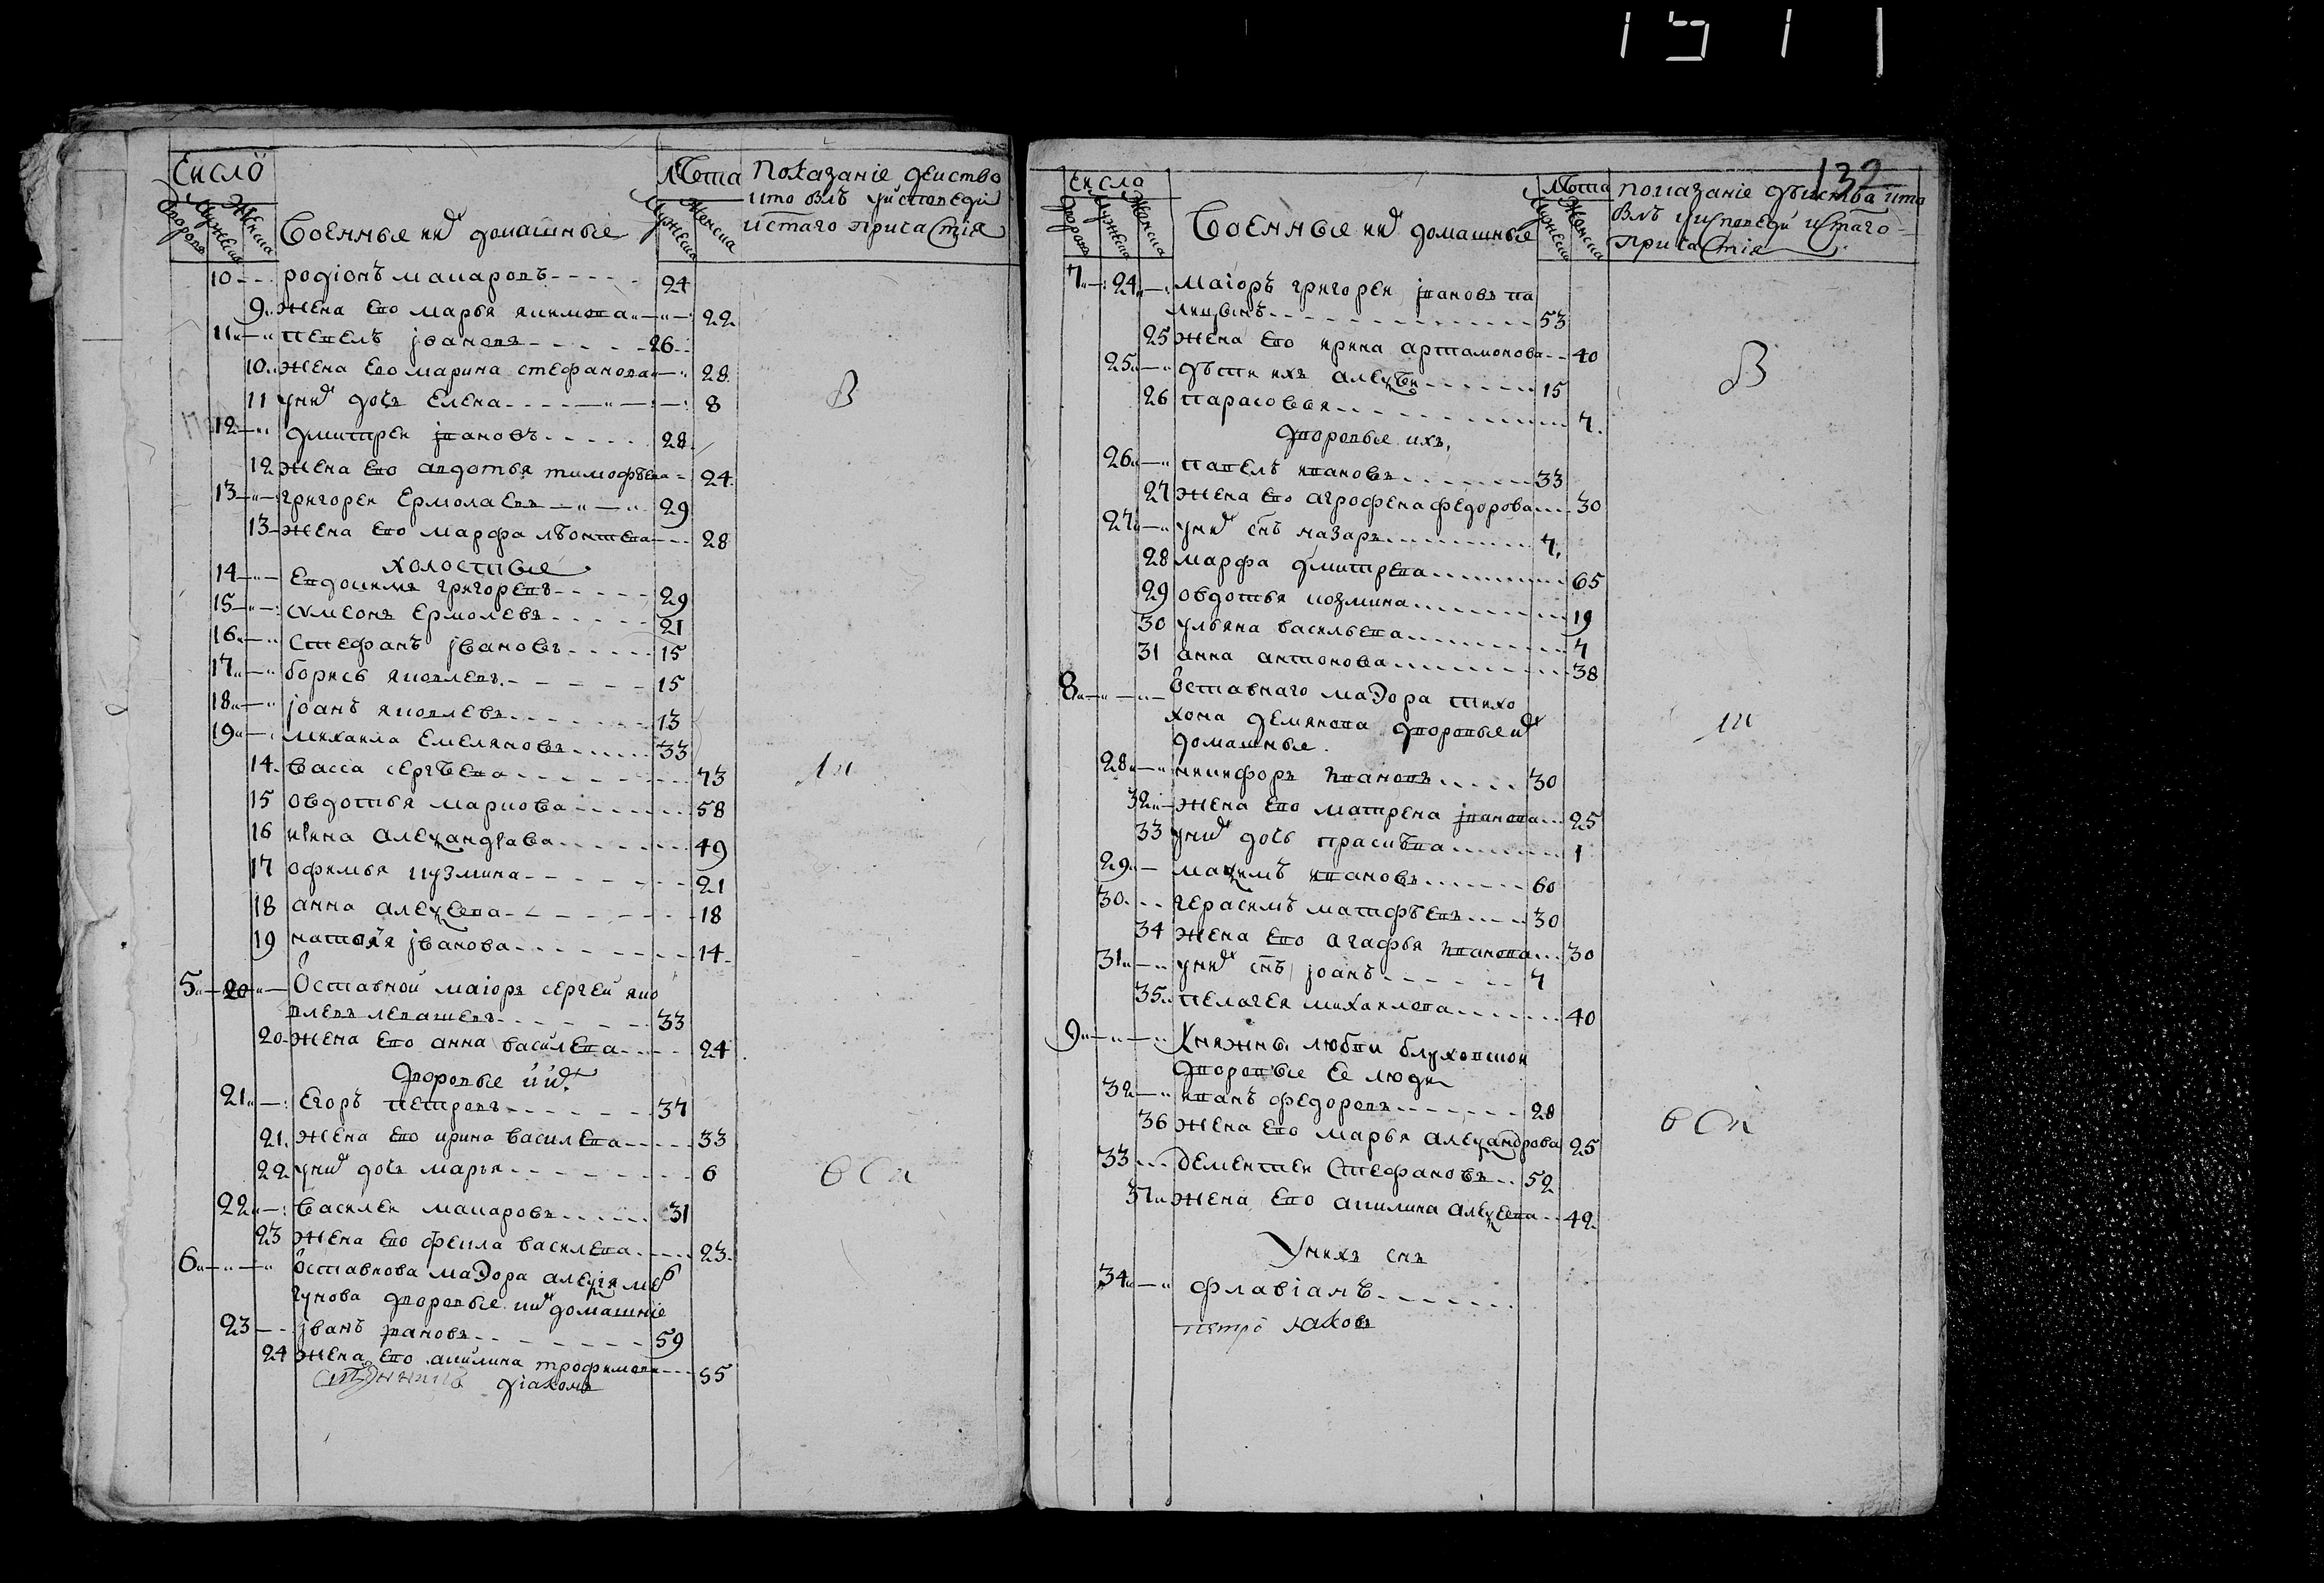 Число
Дворовъ
Мужеска
Женска
Военные ихъ домашные
Лѣта
Мужеска
Женска
Показаніе действо
кто былъ у исповеди
и стаго причастія
10 Родіонъ макаровъ 24
9 жена ево марья якимова 22
11 павелъ јвановъ 26
10 жена ево марина стефанова 28
11 у них дочь Елена 8
12 дмитреи јвановъ 28
12 жена ево авдотья тимофѣева 24
13 григореи Ермолаевъ 29
13 жена ево марфа лѣонтева 28
холостые
14 Евдокимъ григоревъ 29
15 сѵмеонъ Ермолевъ 21
16 Стефанъ јвановъ 15
17 борисъ яковлевъ 15
18 јоанъ яковлевъ 13
19 михаила Емеляновъ 33
14 васса сергѣева 73
15 овдотья маркова 58
16 Алеѯандрава 49
17 офимья кузмина 21
18 анна Алеѯеева 18
19 јванова 14
5 20 Оставной маіоръ сергей яко
влевъ левашевъ 33
20 жена ево анна василева 24
дворовые их
21 Егоръ петровъ 37
21 жена ево ирина василева 33
22 у них дочь марья 6
22 василеи макаровъ 31
23 жена ево фекла василева 23
6 Оставнова маэора алеѯія ме
гунова дворовые их домашніе
23 јванъ јвановъ 59
24 жена ево акилина трофимова 55
діаконъ
В
132
Число
Дворовъ
Мужеска
Женска
Военные ихъ домашные
Лѣта
Мужеска
Женска
показаніе дѣиства кто
былъ у исповеди и стаго
причастія
7 24 маіоръ григореи јвановъ па
лицынъ 53
25 жена ево ирина артамонова 40
25 дѣти ихъ алеѯѣи 15
26 парасовья 7
дворовые ихъ
26 павелъ ивановъ 33
27 жена ево агрофена федорова 30
27 у них снъ назаръ 7
28 марфа дмитрева 65
29 овдотья козмина 19
30 ульяна васильева 7
31 анна антонова 38
8 Оставнаго маэора тихо
хона демянова дворовые их
домашные
28 никифоръ ивановъ 30
32 жена ево матрена јванова 25
33 у них дочь прасковѣа 1
29 маѯимъ ивановъ 60
30 герасимъ матфѣевъ 30
34 жена ево агафья иванова 30
31 у них снъ јоанъ 7
35 пелагея михаилова 40
9 Княжны любви
дворовые Ее люди
32 иванъ федоровъ 28
36 жена ево марья алеѯандрова 25
33 дементеи Стефановъ 52
37 жена ево акилина алеѯеева 42
У нихъ снъ
34 флавіанъ
петръ яковъ
В